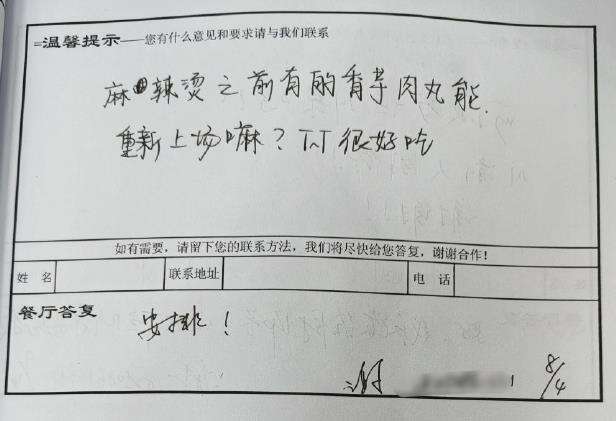 =温馨提示——您有什么意见和要求请与我们联系
麻辣烫之前有的香芋肉丸能
重新上场嘛？TAT 很好吃
如有需要，请留下您的联系方法，我们将尽快给您答复，谢谢合作！
姓 名 联系地址 电 话
餐厅答复 安排！
8/4